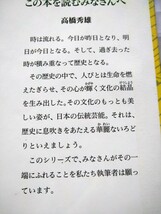 この本を読むみなさんへ
高橋秀雄
時は流れる。今日が昨日となり、明
日が今日となる。そして、過ぎ去った
時が積み重なって歴史となる。
その歴史の中で、人びとは生命を燃
えたぎらせ、その心が輝く文化の結晶
を生み出した。その文化のもっとも美
しい姿が、日本の伝統芸能。それは、
歴史に息吹きをあたえる華麗ないろど
りといえましょう。
このシリーズで、みなさんがその一
端にふれることを私たち執筆者は願っ
ています。